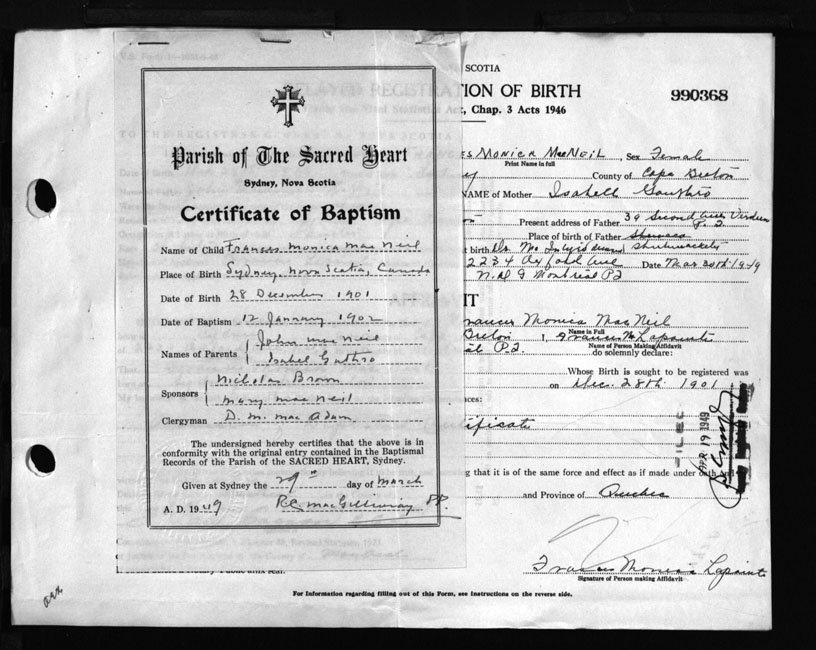 Parish of The Sacred Heart
Sydney, Nova Scotia
Certificate of Baptism
Name of Child Frances Monica Mac Neil
Place of Birth Sydney, Nova Scotia, Canada
Date of Birth 28 December 1901
Date of Baptism 12 January 1902
Names of Parents John Mac Neil
Isabel Guthro
Sponsors Nicholas Brown
Mary Mac Neil
Clergyman D. M. Mac Adam
The undersigned hereby certifies that the above is in
conformity with the original entry contained in the Baptismal
Records of the Parish of the SACRED HEART, Sydney.
Given at Sydney the 29th day of March
A. D. 1949 R.C. MacGillivray P.P.
SCOTIA
TION OF BIRTH
990368
, Chap. 3 Acts 1946
ES MONICA MacNEIL, Sex Female
Print Name in full
County of Cape Breton
NAME of Mother Isabell Gouthro
Present address of Father 39 Second Ave Verdun
P.Q.
Place of birth of Father
t birth Dr. Mc
2234 Oxford Ave Date Mar 30th 1949
N.D.G Montreal PQ
IT
Frances Monica MacNeil
Name in Full
Breton I, Frances M Lapointe
Name of Person Making Affidavit
al P.Q. do solemnly declare:
Whose Birth is sought to be registered was
on Dec. 28th 1901
nces:
tificate
FILED
APR 19 1949
g that it is of the same force and effect as if made under oath and
and Province of Quebec
Frances Monica Lapointe
Signature of Person making Affidavit
For Information regarding filling out of this Form, see instructions on the reverse side.